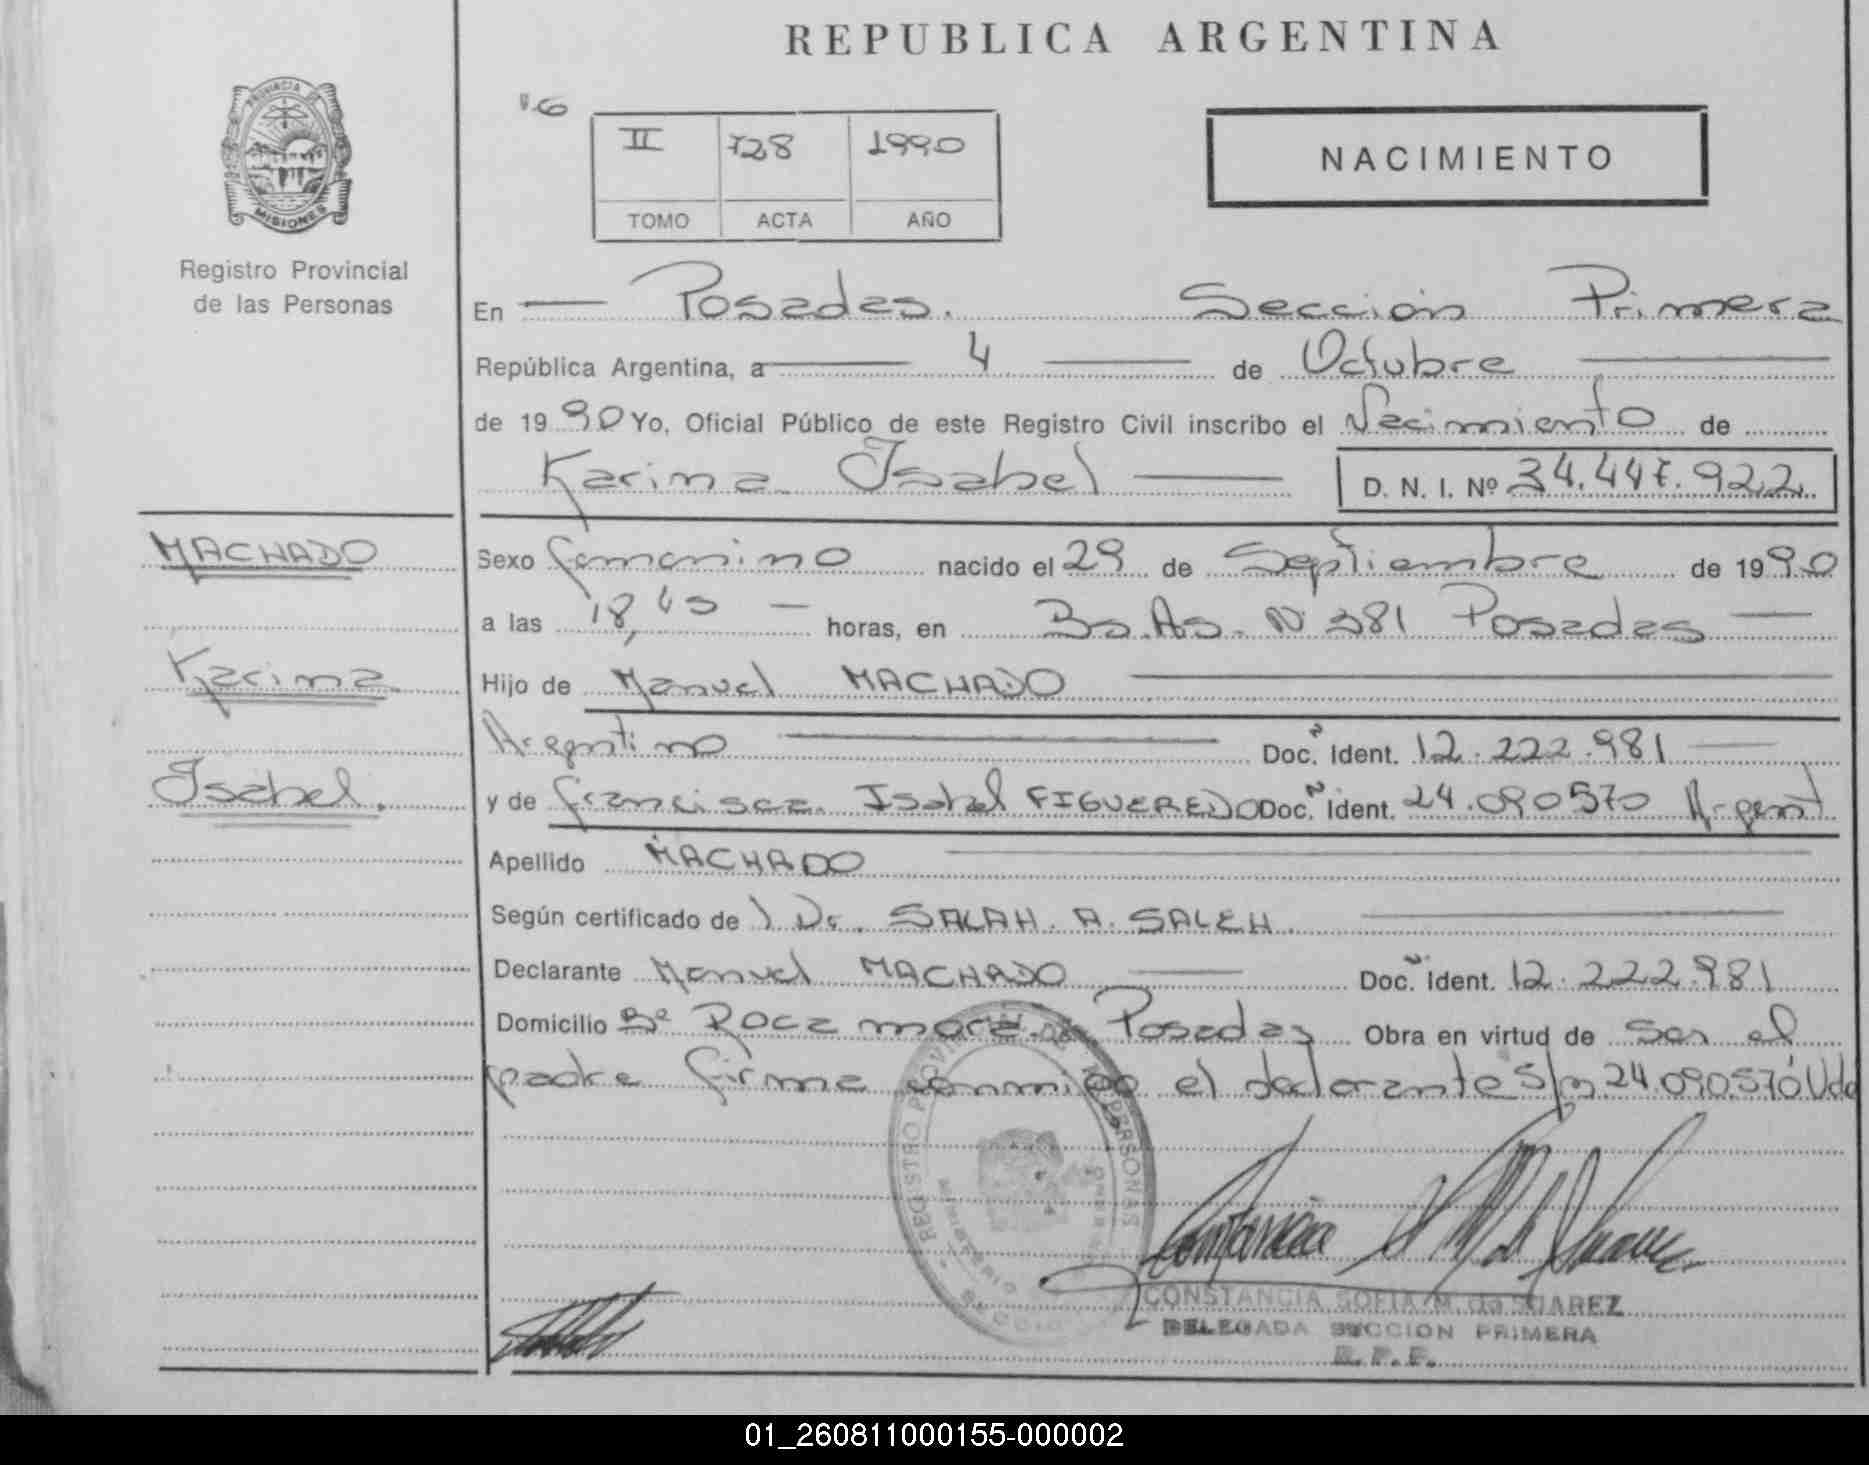 REPUBLICA ARGENTINA
PROVINCIA DE
MISIONES
Registro Provincial
de las Personas
II 728 1990
TOMO ACTA AÑO
NACIMIENTO
En Posadas. Sección Primera
República Argentina, a 4 de Octubre
de 1990 Yo, Oficial Público de este Registro Civil inscribo el Nacimiento de
Karina Isabel D. N. I. Nº 34.447.922
MACHADO
Karina
Isabel.
Sexo femenino nacido el 29 de Septiembre de 1990
a las 18,45 horas, en Bs.As. N 381 Posadas
Hijo de Manuel MACHADO
Argentino Doc. Ident. 12.222.981
y de francisca Isabel FIGUEREDO Doc. Ident. 24.090570 Argent
Apellido MACHADO
Según certificado de Dr. SALAH. A. SALEH.
Declarante Manuel MACHADO Doc. Ident. 12.222.981
Domicilio Bº Roca Posadas Obra en virtud de ser el
padre firma conmigo el declarante S/r 24.090.570
REGISTRO PROVINCIAL DE LAS PERSONAS
MINISTERIO DE GOBIERNO
CONSTANCIA SOFIA M. de SUAREZ
DELEGADA SECCION PRIMERA
R. P. P.
01_260811000155-000002